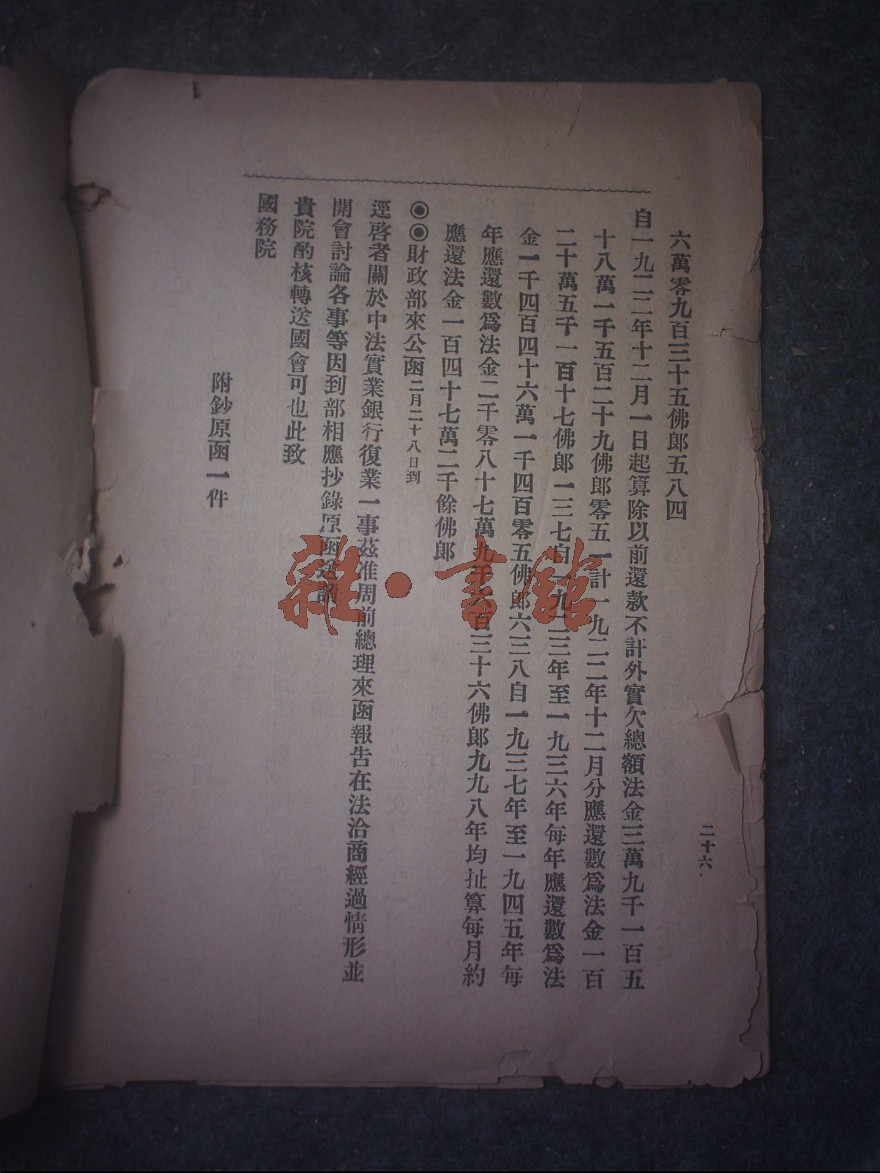 二十六
六萬零九百三十五佛郎五八四
自一九二二年十二月一日起算除以前還款不計外實欠總額法金三萬九千一百五
十八萬一千五百二十九佛郎零五一計一九二二年十二月分應還數爲法金一百
二十萬五千一百十七佛郎一三七自一九二三年至一九三六年每年應還數爲法
金一千四百四十六萬一千四百零五佛郎六三八自一九三七年至一九四五年每
年應還數爲法金二千零八十七萬九千六百三十六佛郎九九八年均扯算每月約
應還法金一百四十七萬二千餘佛郎
◉◉財政部來公函二月二十八日到
逕啓者關於中法實業銀行復業一事茲准周前總理來函報告在法洽商經過情形並
開會討論各事等因到部相應抄錄原函送請
貴院酌核轉送國會可也此致
國務院
附鈔原函一件
雜·書館